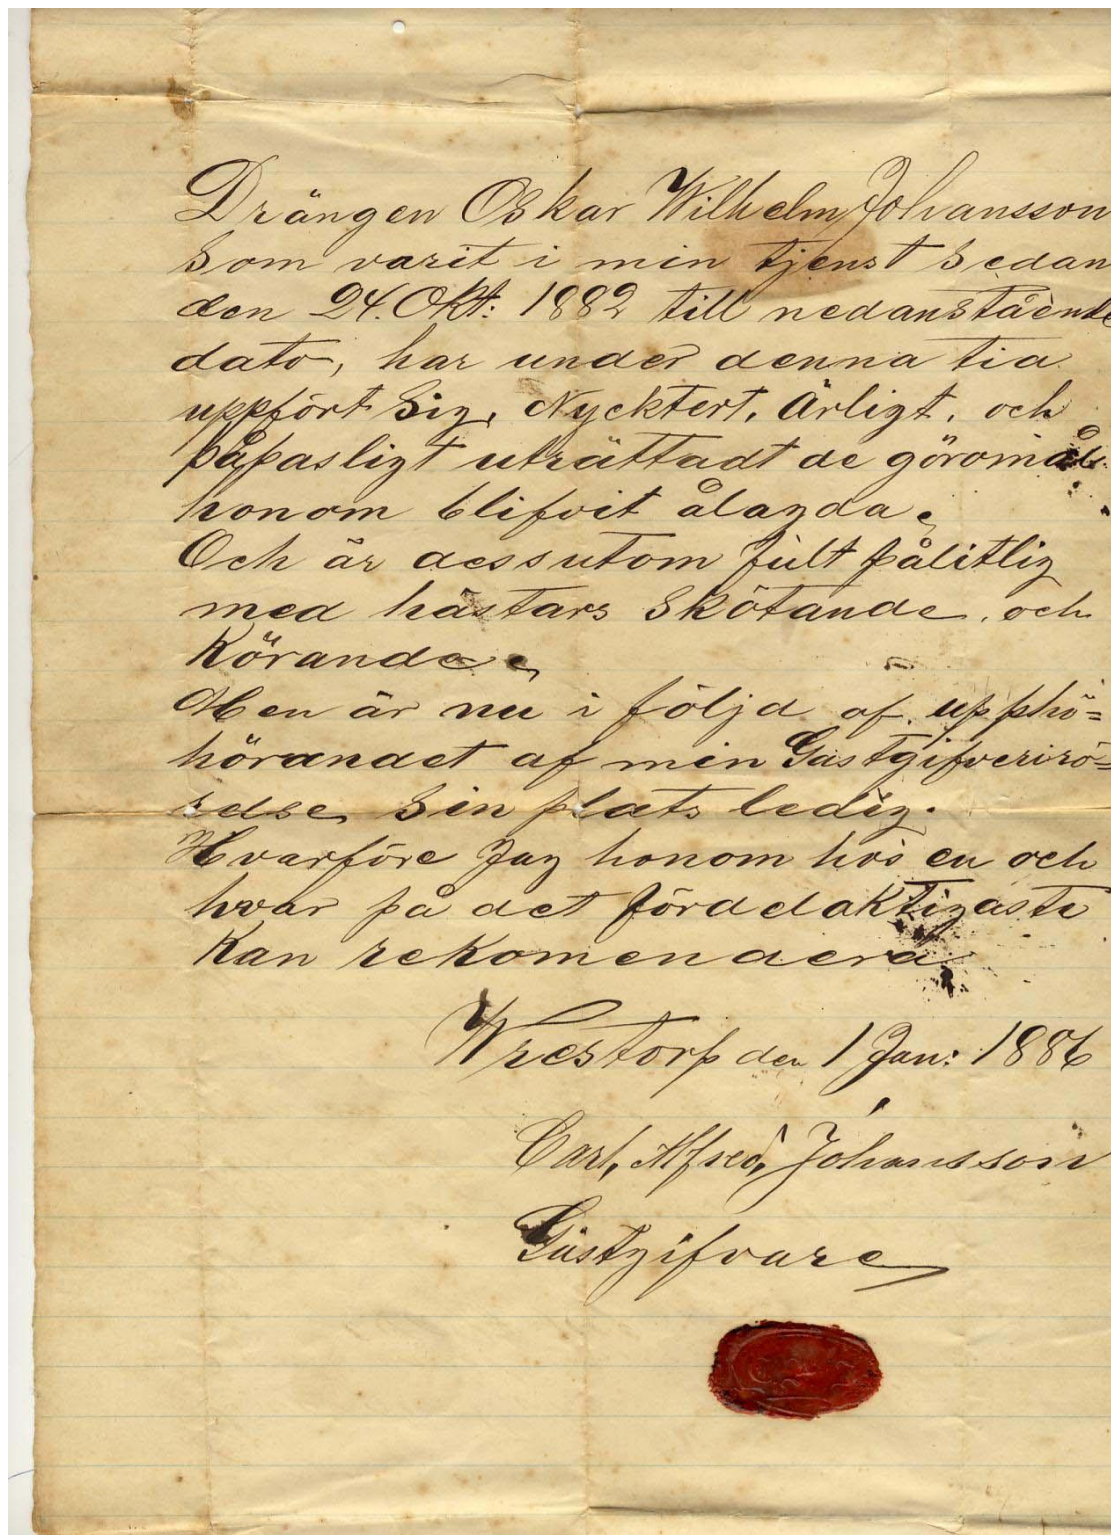 Drängen Oskar Wilhelm Johansson
som varit i min tjenst sedan
den 24. Okt: 1882 till nedanstående
dato, har under denna tid
uppfört sig, Nycktert, Ärligt, och
påpasligt uträttadt de göromål
honom blifvit ålagda.
Och är dessutom fult pålitlig
med hästars skötande, och
Körande.
Men är nu i följd af upphö=
hörandet af min Gästgifverirö=
relse, sin plats ledig.
Hvarföre Jag honom hos en och
hvar på det fördelaktigaste
Kan rekomendera
den 1 Jan: 1886
Carl, Alfred, Johansson
Gästgifvare